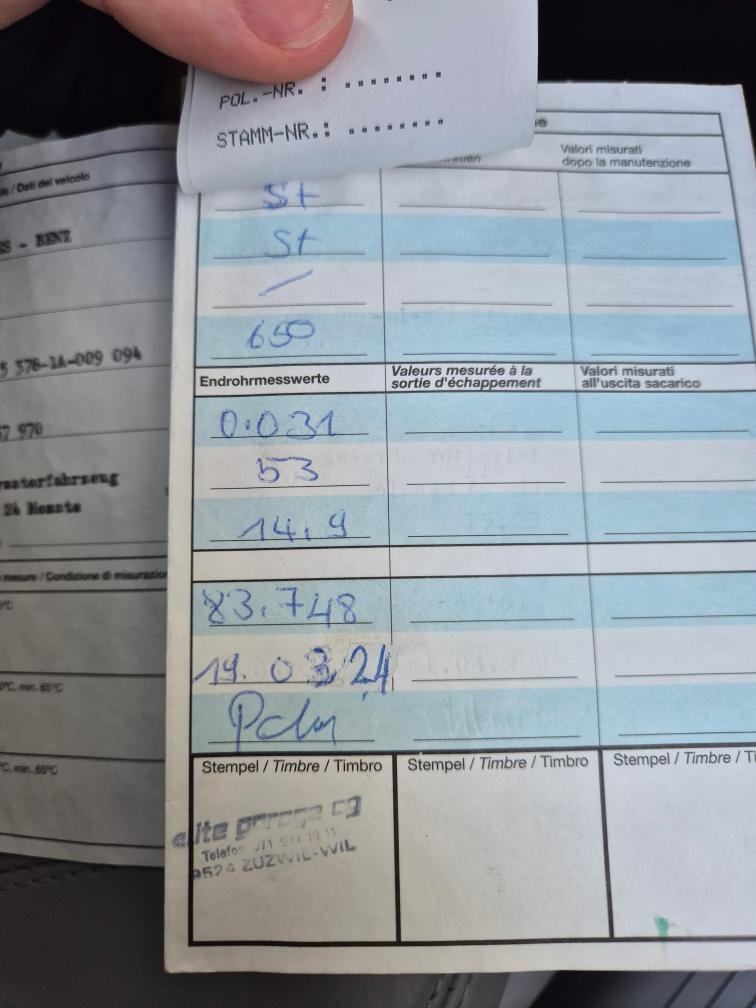 POL.-NR. : ........
STAMM-NR.: ........
Valori misurati
dopo la manutenzione
/ Dati del veicolo
- BENZ
5 378-1A-009 094
970
24 Monate
mesure / Condizione di misurazio
°C
0°C, min. 65°C
°C, min. 65°C
St
St
/
650
Endrohrmesswerte
Valeurs mesurée à la
sortie d'échappement
Valori misurati
all'uscita sacarico
0.031
53
14.9
83.748
19.03.24
Stempel / Timbre / Timbro
Stempel / Timbre / Timbro
Stempel / Timbre / T
elite garage ag
Telefon 071
9524 ZUZWIL-WIL